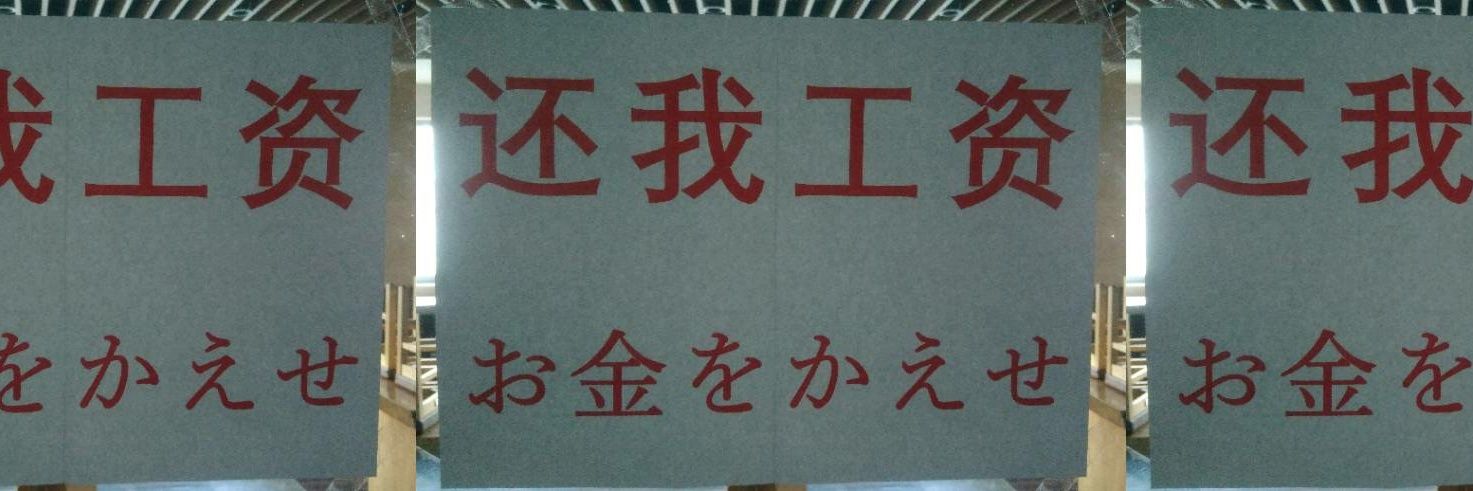 我工资 还我工资 还我
をかえせ お金をかえせ お金を